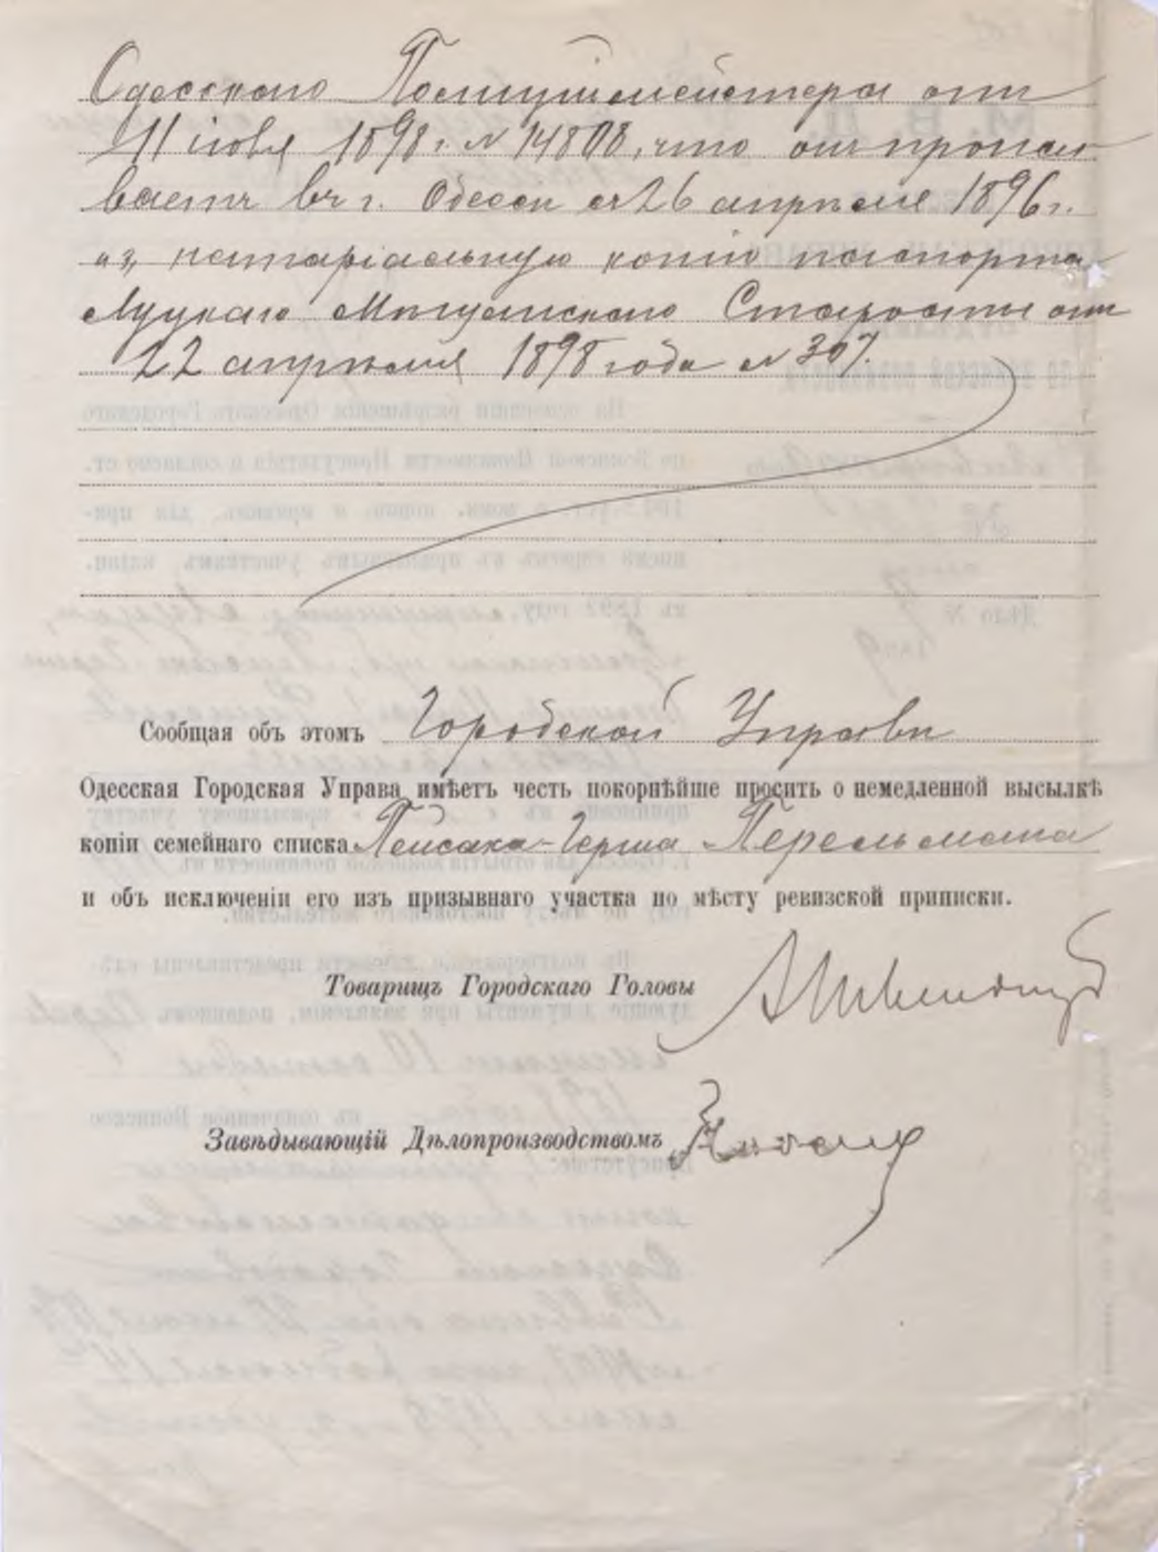 Одесскаго Полицiймейстера отъ
11 iюля 1898 г. № 14808, что онъ прожи
ваетъ въ г. Одессѣ съ 26 апрѣля 1896 г.
из, нотарiальную копiю паспорта
Луцкаго Мѣщанскаго Старосты отъ
22 апрѣля 1898 года № 307.
Сообщая объ этомъ Городской Управѣ
Одесская Городская Управа имѣетъ честь покорнѣйше просить о немедленной высылкѣ
копiи семейнаго списка Пейсаха-Герша Перельмана
и объ исключенiи его изъ призывнаго участка по мѣсту ревизской приписки.
Товарищъ Городскаго Головы
Завѣдывающiй Дѣлопроизводствомъ